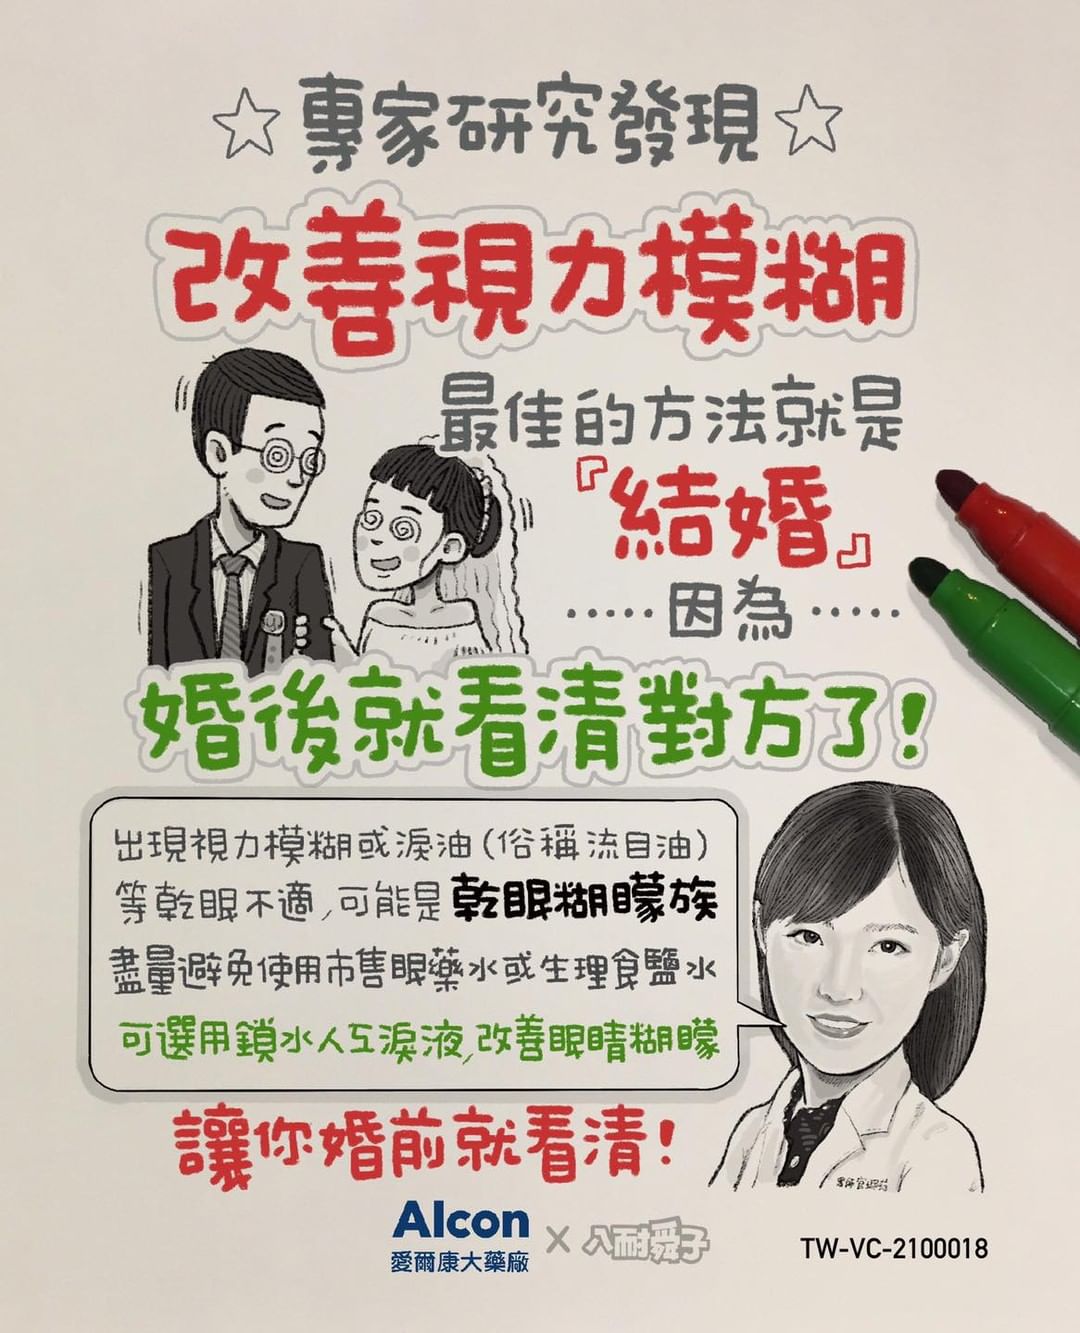 ☆專家研究發現☆
改善視力模糊
最佳的方法就是
『結婚』
‧‧‧‧‧因為‧‧‧‧‧
婚後就看清對方了!
出現視力模糊或淚油(俗稱流目油)
等乾眼不適,可能是乾眼糊矇族
盡量避免使用市售眼藥水或生理食鹽水
可選用鎖水人工淚液,改善眼睛糊矇
讓你婚前就看清!
Alcon
愛爾康大藥廠
×
八耐舜子
TW-VC-2100018